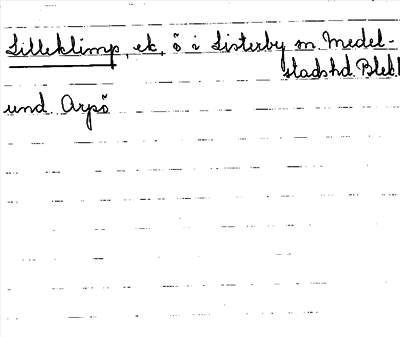 Lilleklimp, ek, ö i Listerby sn. Medel-
stads hd. Blek.l
und. Arpö